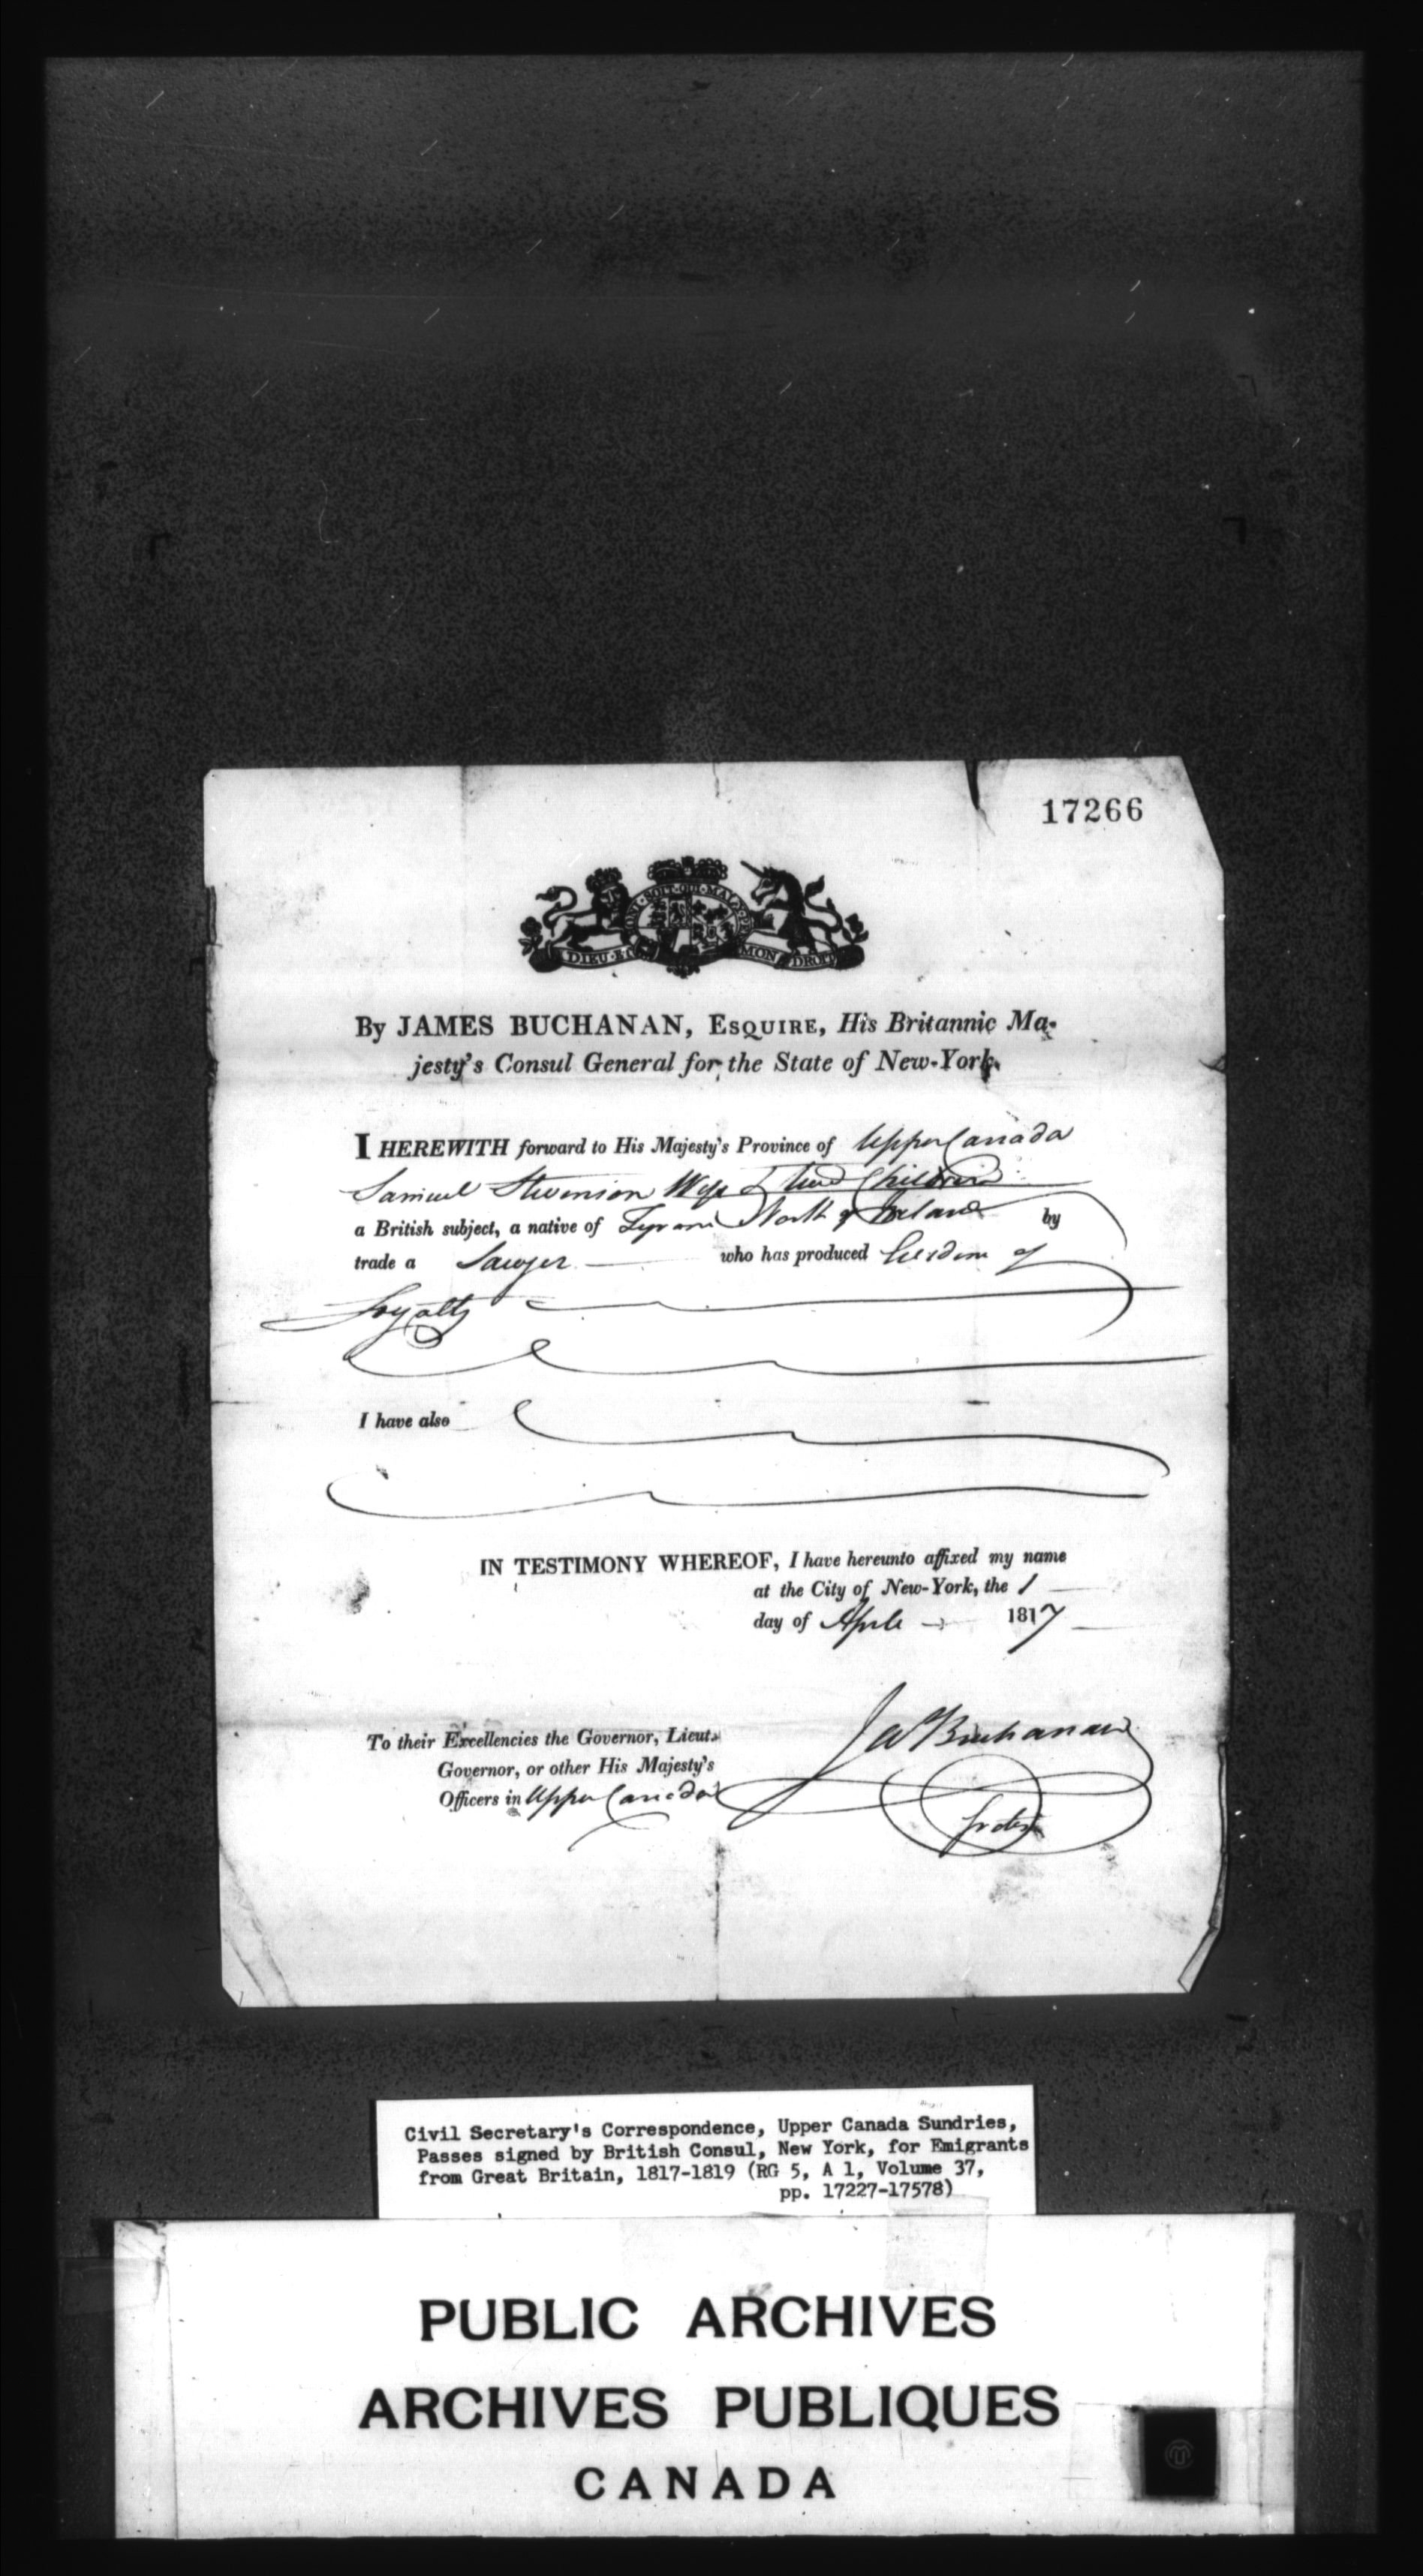 17266
DIEU ET MON DROIT
By JAMES BUCHANAN, ESQUIRE, His Britannic Ma-
jesty's Consul General for the State of New-York.
I HEREWITH forward to His Majesty's Province of Upper Canada
Samuel Stevenson Wife & Children
a British subject, a native of North of Ireland by
trade a Sawyer who has produced of
Loyalty
I have also
IN TESTIMONY WHEREOF, I have hereunto affixed my name
at the City of New-York, the 1
day of 1817
To their Excellencies the Governor, Lieut.
Governor, or other His Majesty's
Officers in Upper Canada
Jas Buchanan
Civil Secretary's Correspondence, Upper Canada Sundries,
Passes signed by British Consul, New York, for Emigrants
from Great Britain, 1817-1819 (RG 5, A 1, Volume 37,
pp. 17227-17578)
PUBLIC ARCHIVES
ARCHIVES PUBLIQUES
CANADA